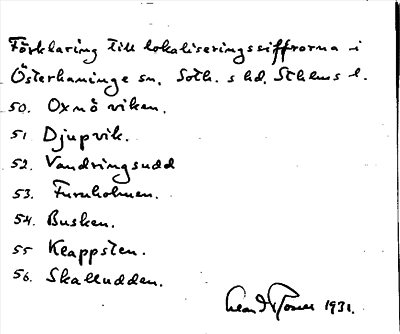 Förklaring till lokaliseringssiffrorna i
Österhaninge sn. Soth. s hd. Sthlms l.
50. Oxnö viken.
51 Djupvik.
52. Vandringsudd
53. Furuholmen.
54. Busken.
55 Klappsten.
56. Skalludden.
1931.